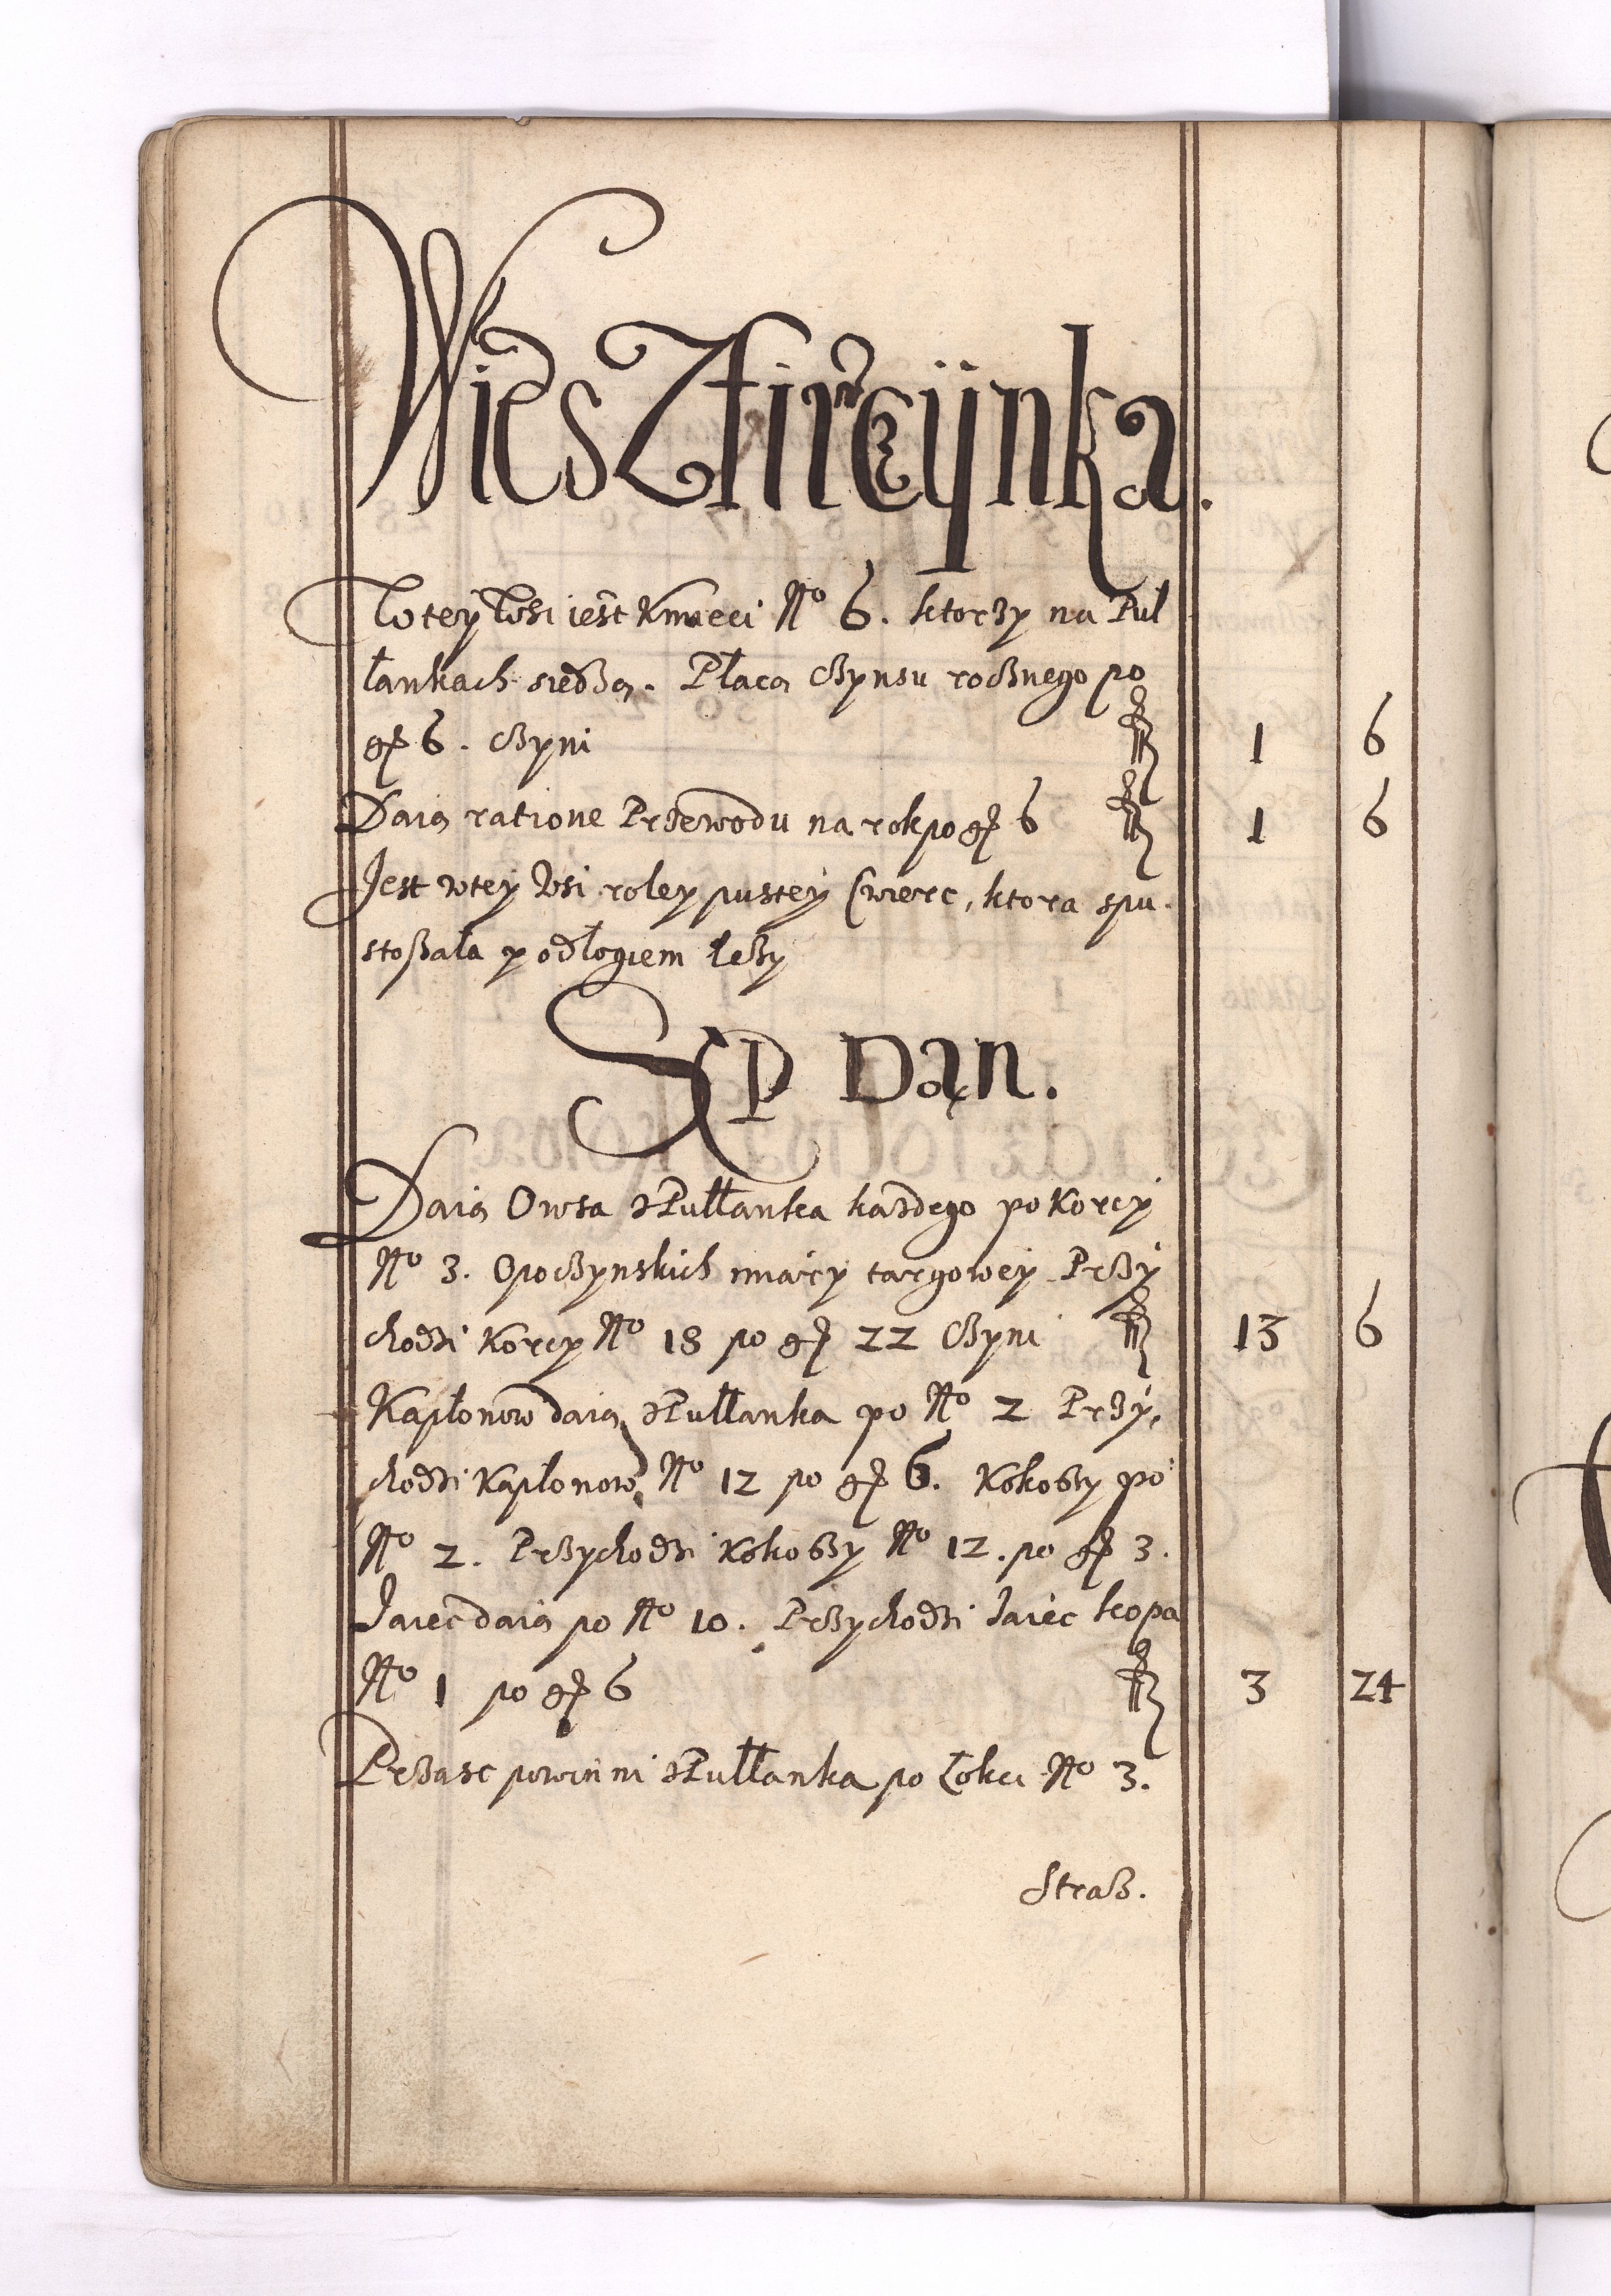 Wies Ztircijnka.
W tey Wsi iest Kmieci No 6. ktorzy na Puł
łankach siedzą. Płacą Czynsu rocznego po
gr 6. czyni fl 1 6
Daią ratione Przewodu na rok po gr 6 fl 1 6
Jest w tey Wsi roley pustey Cwierc, ktora spu
stoszała y odłogiem leży
SEP Dąn.
Daią Owsa z Pułłanka każdego po Korcy
No 3. Opoczynskich miary targowey Przy
chodzi Korcy No 18 po gr 22 Czyni fl 13 6
Kapłonow daią z Pułłanka po No 2 Przy,
chodzi Kapłonow No 12 po gr 6. Kokoszy po
No 2. Przychodzi Kokoszy No 12. po gr 3.
Jaiec daią po No 10. Przychodzi Jaiec kopa
No 1 po gr 6 fl 3 24
Przasc powinni z Pułłanka po Łokci No 3.
Straż.